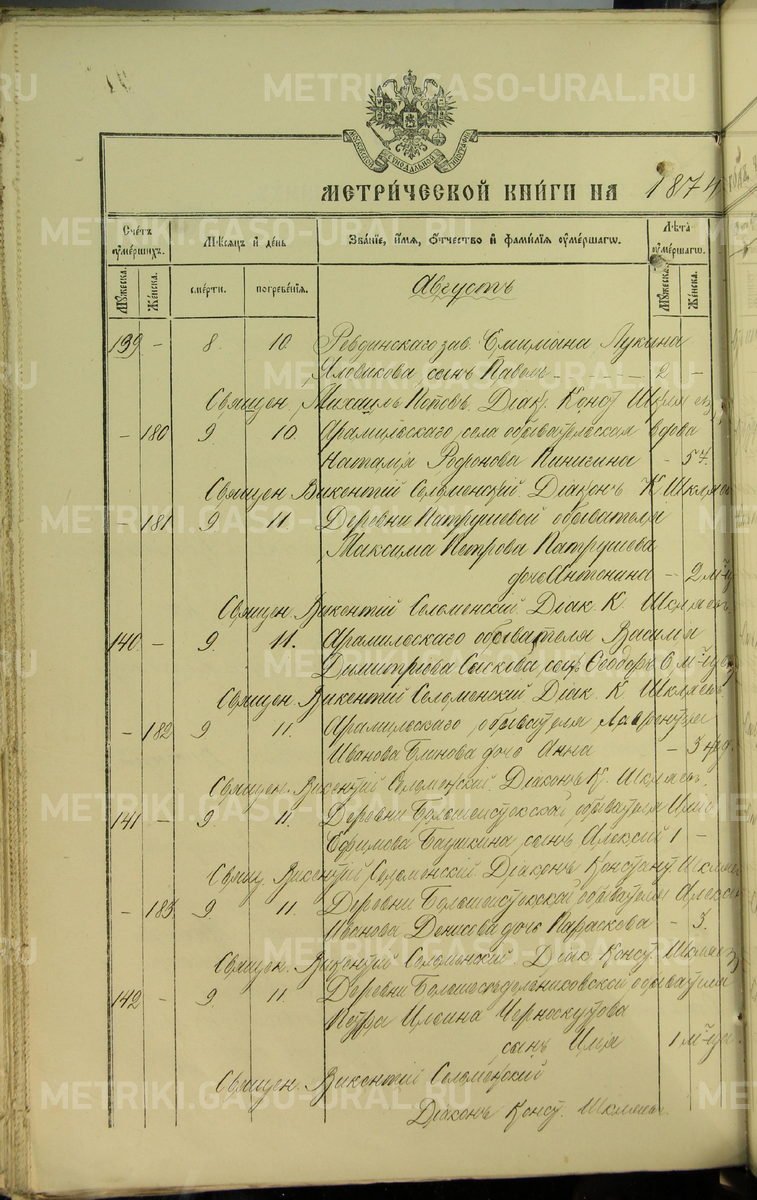 МОСКОВСКОЙ СѴНОДАЛЬНОЙ ТИПОГРАФІИ
МЕТРИ́ЧЕСКОЙ КНИ́ГИ НА 1874
Счетъ ᲂумершихъ. Мѣсяцъ и день Зва́ніе, и́мя, ѻ́тчество и фами́лія ᲂуме́ршагѡ. Лѣта ᲂуме́ршагѡ.
Мꙋжеска. Же́нска. сме́рти. погребе́нія. Августъ Мꙋжеска. Же́нска.
139 - 8. 10. Ревдинскаго зав. Емиліана Лукина
Яловикова сынъ Павелъ - 2 -
Священ. Михаилъ Поповъ. Діак. Конст. Шкляевъ
- 180 9 10. Арамильскаго села обывательская вдова
Наталія Пинигина - 57.
Священ. Викентій Соломенскій. Діаконъ К. Шкляевъ
- 181 9 11 Деревни Патрушевой обывателя
Максима Петрова Патрушева
дочь Антонина - 2 м-ца
Священ. Викентій Соломенскій Діак. К. Шкляевъ
140. - 9. 11. Арамильскаго обывателя Василія
Димитріева сынъ Ѳеодоръ 6 м-цевъ
Священ. Викентій Соломенскій Діак. К. Шкляевъ
- 182 9 11. Арамильскаго обывателя Лаврентія
Иванова Блинова дочь Анна - 3 нед.
Священ. Викентій Соломенскій. Діаконъ К. Шкляевъ.
141 - 9. 11. Деревни Большеистокской обывателя
Ефимова сынъ Алексій 1 -
Свящ. Викентій Соломенскій. Діаконъ Констант. Шкляевъ
- 183. 9. 11. Деревни Большеистокской обывателя
Иванова Денисова дочь Параскева - 3.
Священ. Викентій Соломенскій. Діак. Конст. Шкляевъ
142 - 9. 11. Деревни Большеседельниковской обывателя
Петра Ильина Черноскутова
сынъ Илія 1 м-ца.
Священ. Викентій Соломенскій
Діаконъ Конст. Шкляевъ.
METRIKI.GASO-URAL.RU